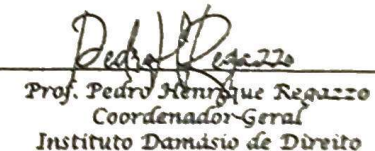 Pedro H Regazzo
Prof. Pedro Henrique Regazzo
Coordenador-Geral
Instituto Damásio de Direito